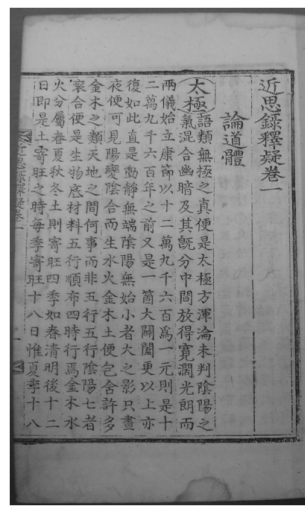 近思錄釋疑卷一
論道體
太極 語類無極之真便是太極方渾淪未判陰陽之
氣混合幽暗及其旣分中間放得寛濶光朗而
兩儀始立康節以十二萬九千六百爲一元則是十
二萬九千六百年之前又是一箇大闢闔更以上亦
復如此直是動靜無端陰陽無始小者大之影只晝
夜便可見陽變陰合而生水火金木土便包含許多
金木之類天地之間何事而非五行五行陰陽七者
衮合便是生物底材料五行順布四時行焉金木水
火分屬春夏秋冬土則寄旺四季如春淸明後十二
日即是土寄旺之時每季寄旺十八日惟夏季十八